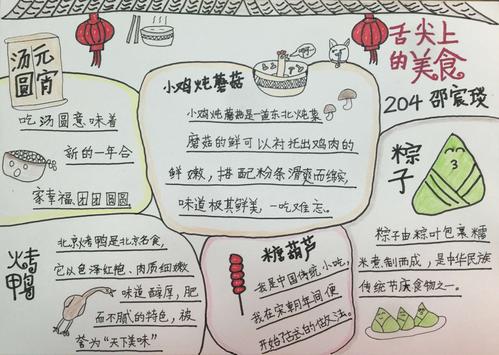 舌尖上
的美食
204 邵宸
元宵
汤圆
吃汤圆意味着
新的一年合
家幸福、团团圆圆
小鸡炖蘑菇
小鸡炖蘑菇是一道东北炖菜
蘑菇的鲜可以衬托出鸡肉的
鲜嫩，搭配粉条滑爽而绵软，
味道极其鲜美，一吃难忘。
粽子
粽子由粽叶包裹糯
米煮制而成，是中华民族
传统节庆食物之一。
烤鸭
北京烤鸭是北京名食，
它以色泽红艳、肉质细嫩
味道醇厚，肥
而不腻的特色，被
誉为“天下美味”
糖葫芦
我是中国传统小吃，
我在宋朝年间便
开始了古式的做法。